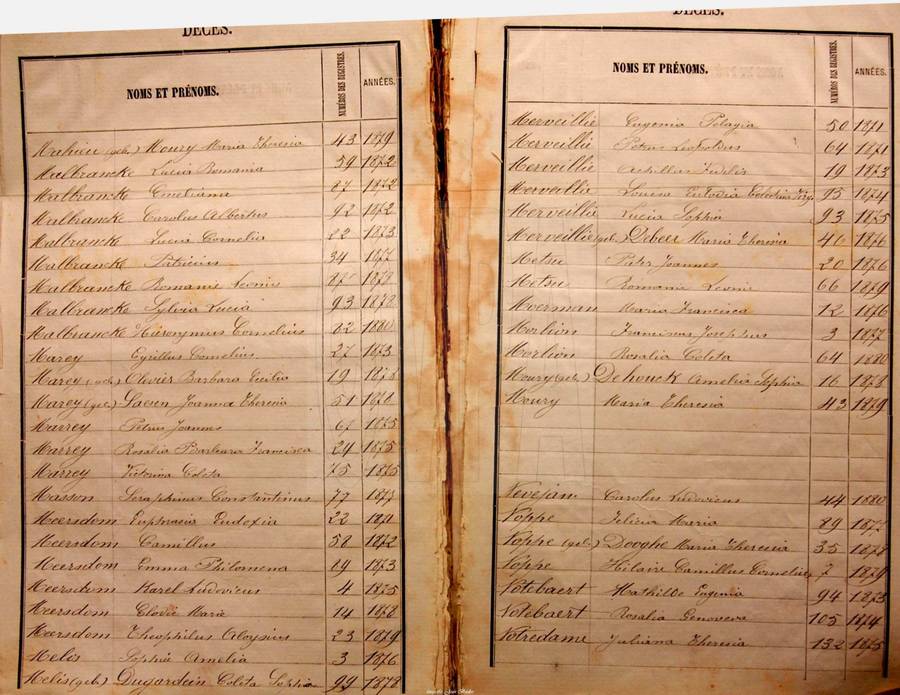 DÉCÈS.
NOMS ET PRÉNOMS. NUMÉROS DES REGISTRES. ANNÉES.
Mahieu (geh.) Moury Maria Theresia 43 1879
Malbrancke Lucia Romania 59 1872
Malbrancke Emeliana 87 1872
Malbrancke Carolus Albertus 92 1872
Malbrancke Lucia Cornelia 22 1873
Malbrancke Patricius 34 1877
Malbrancke Romanus Leonis 1878
Malbrancke Sylvia Lucia 93 1878
Malbrancke Hieronymus Cornelius 62 1880
Marey Cyrillus Cornelius 27 1873
Marey (geh.) Olivier Barbara Cecilia 19 1878
Marey (geh.) Saesen Joanna Theresia 51 1878
Marrey Petrus Joannes 67 1875
Marrey Rosalia Barbara Francisca 24 1875
Marrey Victorina Coleta 75 1875
Masson Seraphinus Constantinus 77 1877
Meersdom Euphrasia Eudoxia 22 1871
Meersdom Camillus 58 1872
Meersdom Emma Philomena 19 1873
Meersdom Karel Ludovicus 4 1875
Meersdom Elodie Marie 14 1878
Meersdom Theophilus Aloysius 23 1879
Melis Sophia Amelia 3 1876
Melis (geh.) Dujardein Coleta Sophia 99 1878
DÉCÈS.
NOMS ET PRÉNOMS. NUMÉROS DES REGISTRES. ANNÉES.
Merveillie Eugenia Pelagia 50 1871
Merveillie Petrus Leopoldus 64 1871
Merveillie Achillus Fidelis 19 1873
Merveillie Louisa 95 1874
Merveillie Lucia Sophia 93 1875
Merveillie (geh.) Debeer Maria Theresia 40 1876
Metsu Pieter Joannes 20 1876
Metsu Romania Leonie 66 1879
Moerman Maria Francisca 12 1876
Morlion Franciscus Josephus 3 1877
Morlion Rosalia Coleta 64 1880
Moury (geh.) Dehouck Amelia Sophia 16 1878
Moury Maria Theresia 43 1879
Nevejan Carolus Ludovicus 44 1880
Noppe Felicia Maria 89 1877
Noppe (geh.) Dooghe Maria Theresia 35 1878
Noppe Hilaire Camillus Cornelius 7 1879
Notebaert Mathilde Eugenia 94 1873
Notebaert Rosalia Genoveva 105 1874
Notredame Juliana Theresia 132 1875